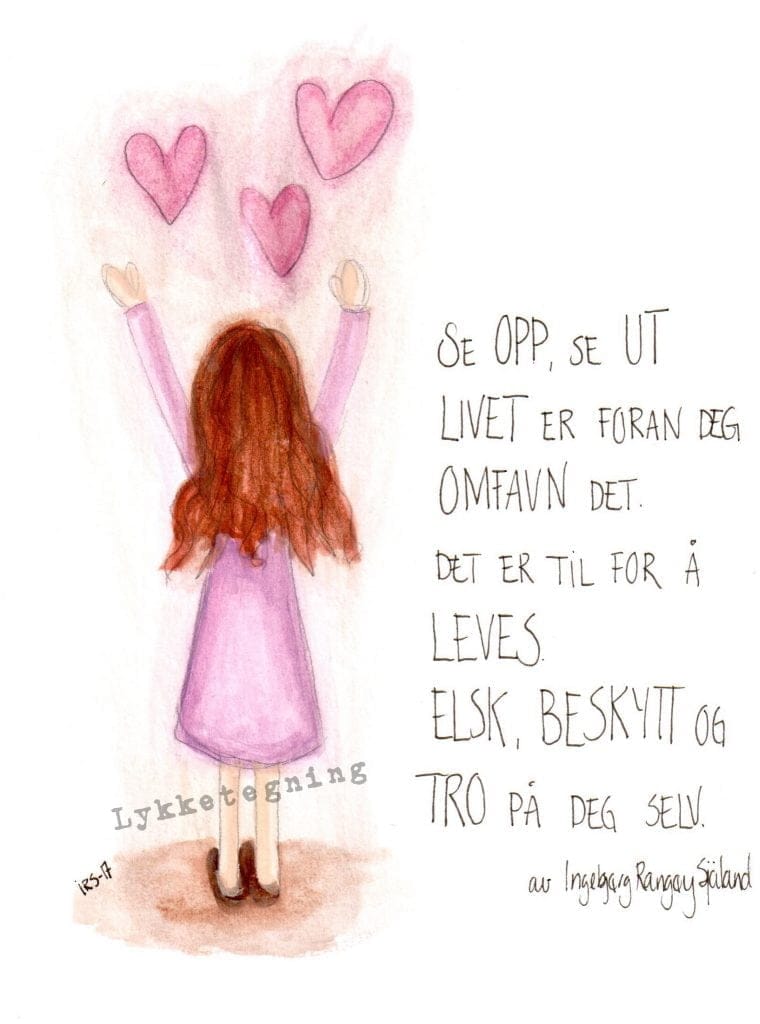 Se OPP, SE UT
LIVET ER FORAN DEG
OMFAVN DET.
DET ER TIL FOR Å
LEVES.
ELSK, BESKYTT OG
TRO PÅ DEG SELV.
av Ingebjørg Rangøy Sjåland
Lykketegning
IRS-17